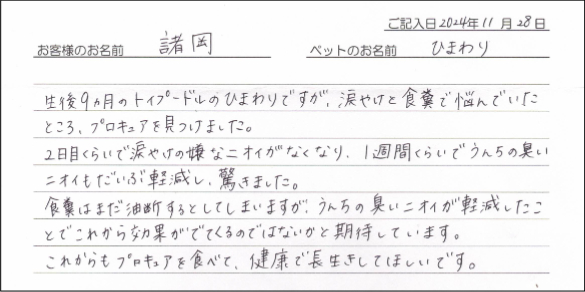 ご記入日2024年11月28日
お客様のお名前 諸岡 ペットのお名前 ひまわり
生後9ヵ月のトイプードルのひまわりですが、涙やけと食糞で悩んでいた
ところ、プロキュアを見つけました。
2日目くらいで涙やけの嫌なニオイがなくなり、1週間くらいでうんちの臭い
ニオイもだいぶ軽減し、驚きました。
食糞はまだ油断するとしてしまいますが、うんちの臭いニオイが軽減したこ
とでこれから効果がでてくるのではないかと期待しています。
これからもプロキュアを食べて、健康で長生きしてほしいです。